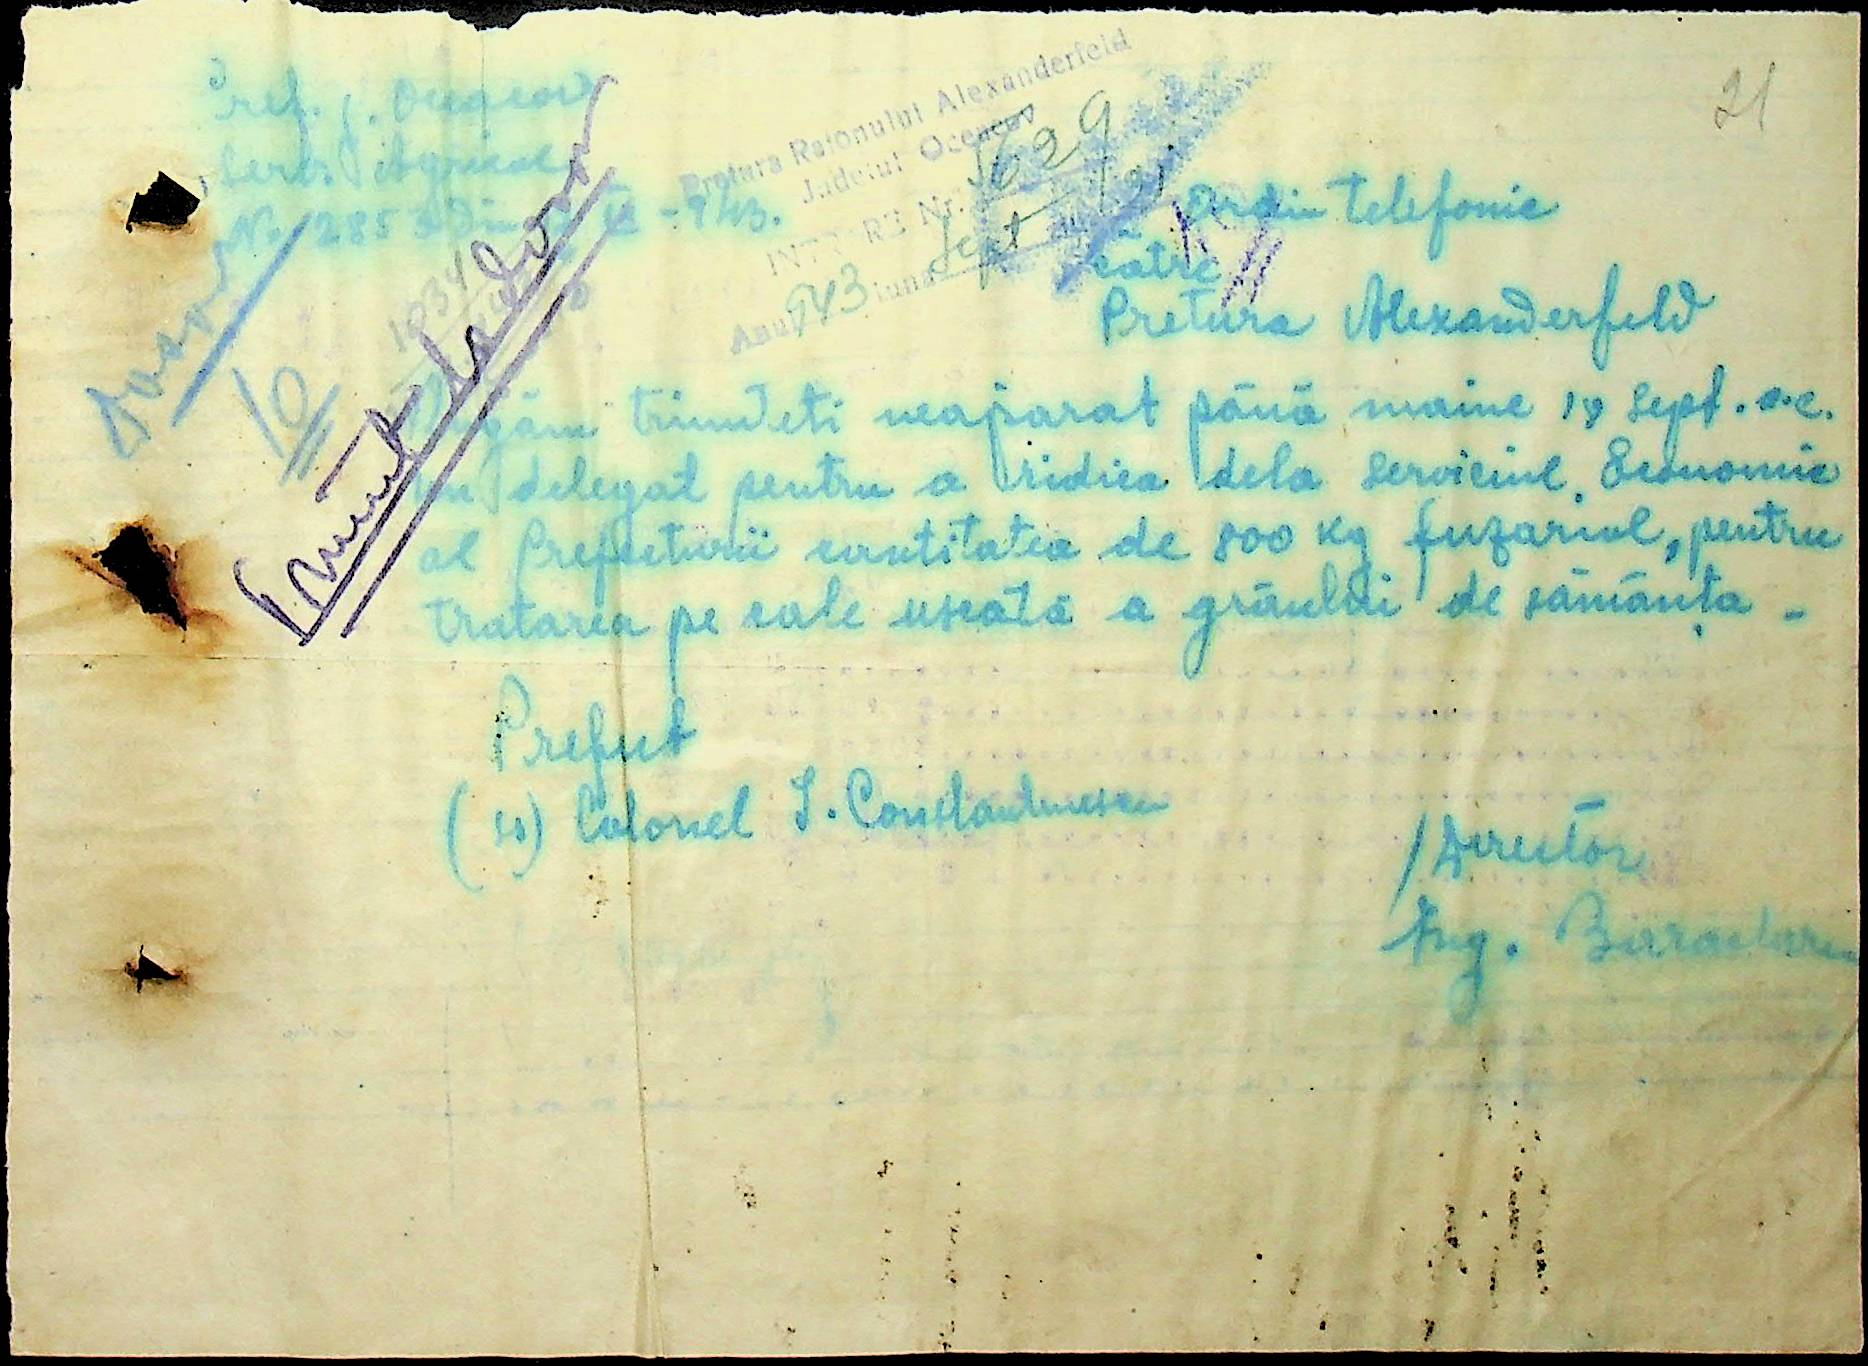 21
Pref. j. Oceacov
Serv. Agricol
No 2853 din IX - 943.
Pretura Raionului Alexanderfeld
Judeţul Oceacov
INTRARE Nr. 5629
Anul 943 luna Sept
Ordin telefonic
către
Pretura Alexanderfeld
Dosar
10
Rugăm trimiteti neapărat până maine 19 Sept. a.c.
un delegat pentru a ridica dela Serviciul Economic
al Prefecturii cantitatea de 800 Kg fuzariol, pentru
tratarea pe cale uscată a grâului de sămânța -
Prefect
(ss) Colonel I. Constantinescu
/ Director
Ing.